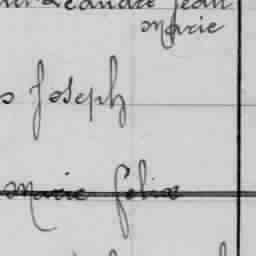 Léandre Jean
Marie
Joseph
Marie Felix